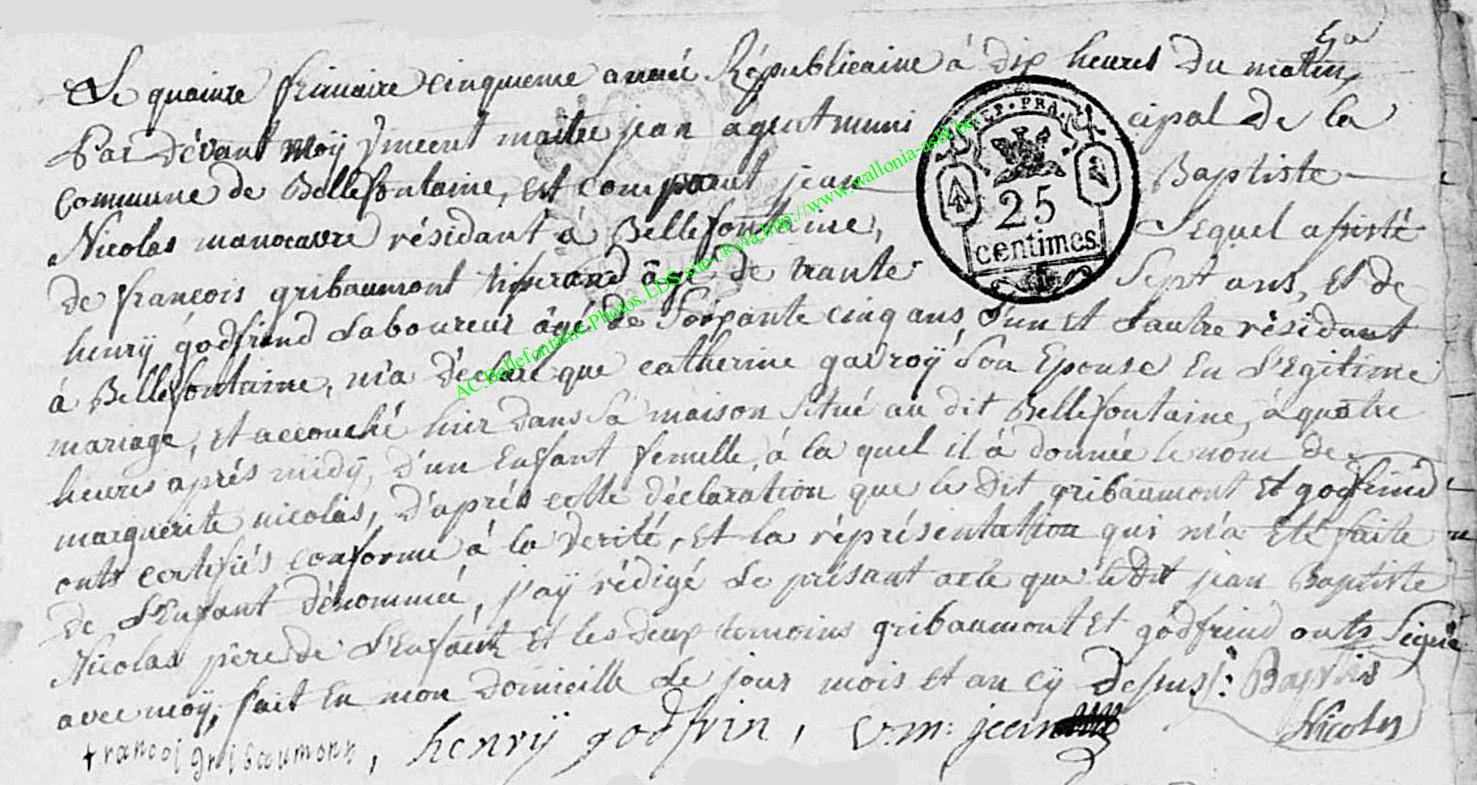 Le quainze frimaire cinquieme année Républicaine à dix heures du matin,
Par dévant moÿ Vincent maitre jean agent muni cipal de la
Commune de Bellefontaine, est comparut jean Baptiste
Nicolas manoeuvre résidant à Bellefontaine, Lequel assisté
de françois gribaumont tisserand âgé de trante Sept ans, et de
henrÿ godfrind Laboureur âgé de Soixante cinq ans, L'un et L'autre résidant
à Bellefontaine, m'a déclaré que catherine gavroÿ Son Epouse En Légitime
mariage, et accouché hier dans Sa maison Situé au dit Bellefontaine, à quatre
heures aprés midÿ, d'un Enfant femelle, à la quel il à donnée le nom de
marguerite nicolas, d'aprés cette déclaration que le dit gribaumont et godfrind
onts certifiés conforme à la verité, et la réprésentation qui m'a été faite
de L'Enfant dénommée, j'aÿ rédigé Le présant acte que le dit jean Baptiste
Nicolas pére de L'enfant et les deux temoins gribaumont et godfrind onts Signé
avec moÿ, fait en mon domicille Le jour mois et an cÿ desus
J: Baptis
Nicolas
francoi gribaumont, henrÿ godfrin, v.m: jean
REP. FRA.
25
centimes
AC.Bellefontaine.Photos.LDS-site.®via.http://www.wallonia-asbl.be/